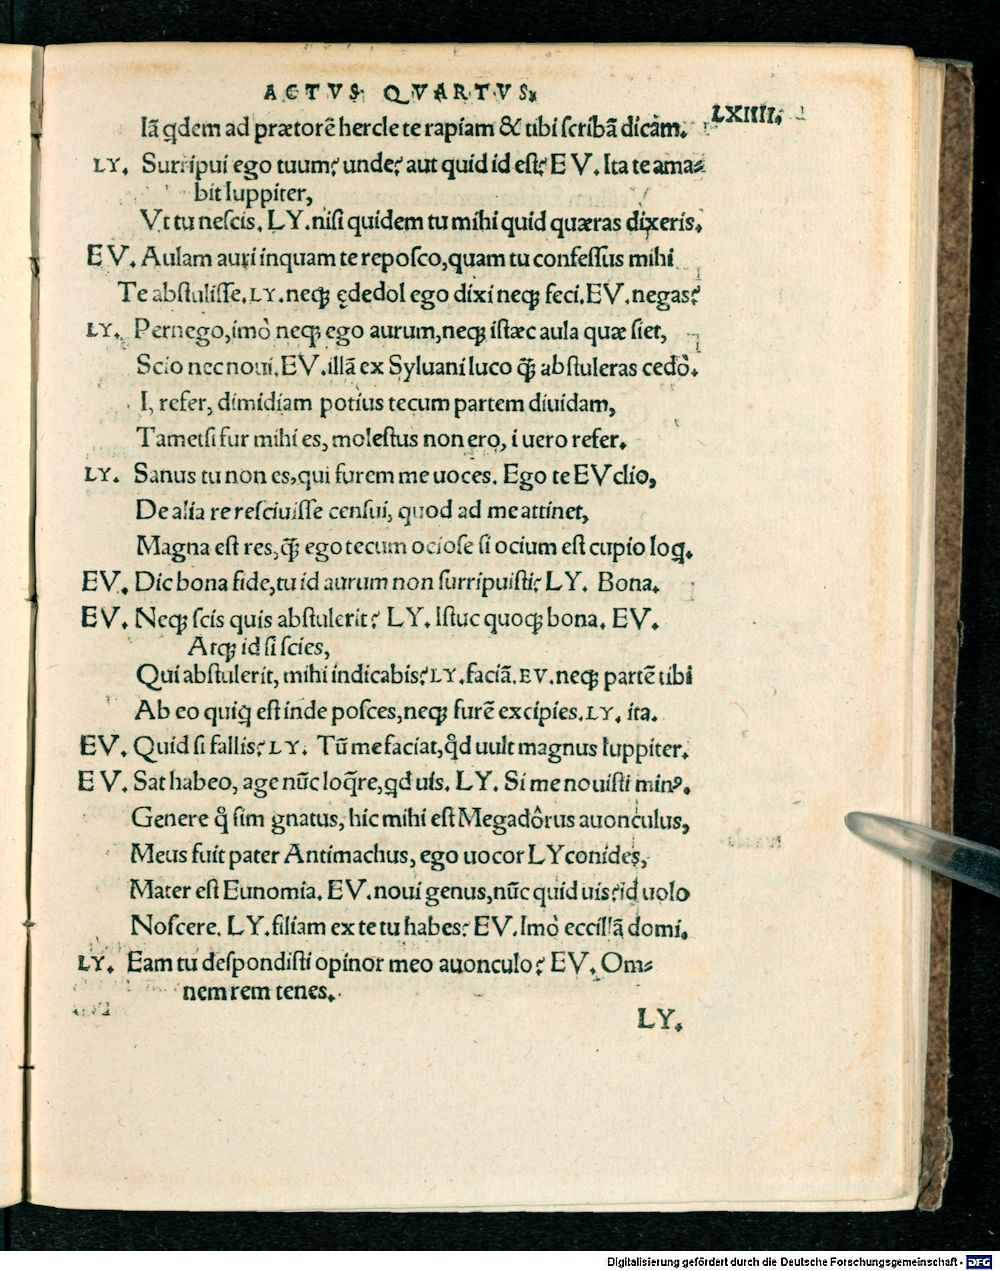 ACTVS QVARTVS.
LXIIII.
Iã qdem ad prætorẽ hercle te rapiam & tibi scribã dicam.
LY. Surripui ego tuum? unde? aut quid id est? EV. Ita te ama-
bit Iuppiter,
Vt tu nescis. LY. nisi quidem tu mihi quid quæras dixeris.
EV. Aulam auri inquam te reposco, quam tu confessus mihi
Te abstulisse. LY. neqꝫ ędedol ego dixi neqꝫ feci. EV. negas?
LY. Pernego, imò neqꝫ ego aurum, neqꝫ istæc aula quæ siet,
Scio nec noui. EV. illã ex Syluani luco q̃ꝫ abstuleras cedò.
I, refer, dimidiam potius tecum partem diuidam,
Tametsi fur mihi es, molestus non ero, i uero refer.
LY. Sanus tu non es, qui furem me uoces. Ego te EVclio,
De alia re resciuisse censui, quod ad me attinet,
Magna est res, q̃ꝫ ego tecum ociose si ocium est cupio loq.
EV. Dic bona fide, tu id aurum non surripuisti? LY. Bona.
EV. Neqꝫ scis quis abstulerit? LY. Istuc quoqꝫ bona. EV.
Atqꝫ id si scies,
Qui abstulerit, mihi indicabis? LY. faciã. EV. neqꝫ partẽ tibi
Ab eo quiq est inde posces, neqꝫ furẽ excipies. LY. ita.
EV. Quid si fallis? LY. Tũ me faciat, qd̃ uult magnus Iuppiter.
EV. Sat habeo, age nũc loq̃re, qd uis. LY. Si me nouisti minꝰ.
Genere q̊ sim gnatus, hic mihi est Megadôrus auonculus,
Meus fuit pater Antimachus, ego uocor LYconides,
Mater est Eunomia. EV. noui genus, nũc quid uis? id uolo
Noscere. LY. filiam ex te tu habes? EV. Imò eccillã domi.
LY. Eam tu despondisti opinor meo auonculo? EV. Om-
nem rem tenes.
LY.
Digitalisierung gefördert durch die Deutsche Forschungsgemeinschaft - DFG